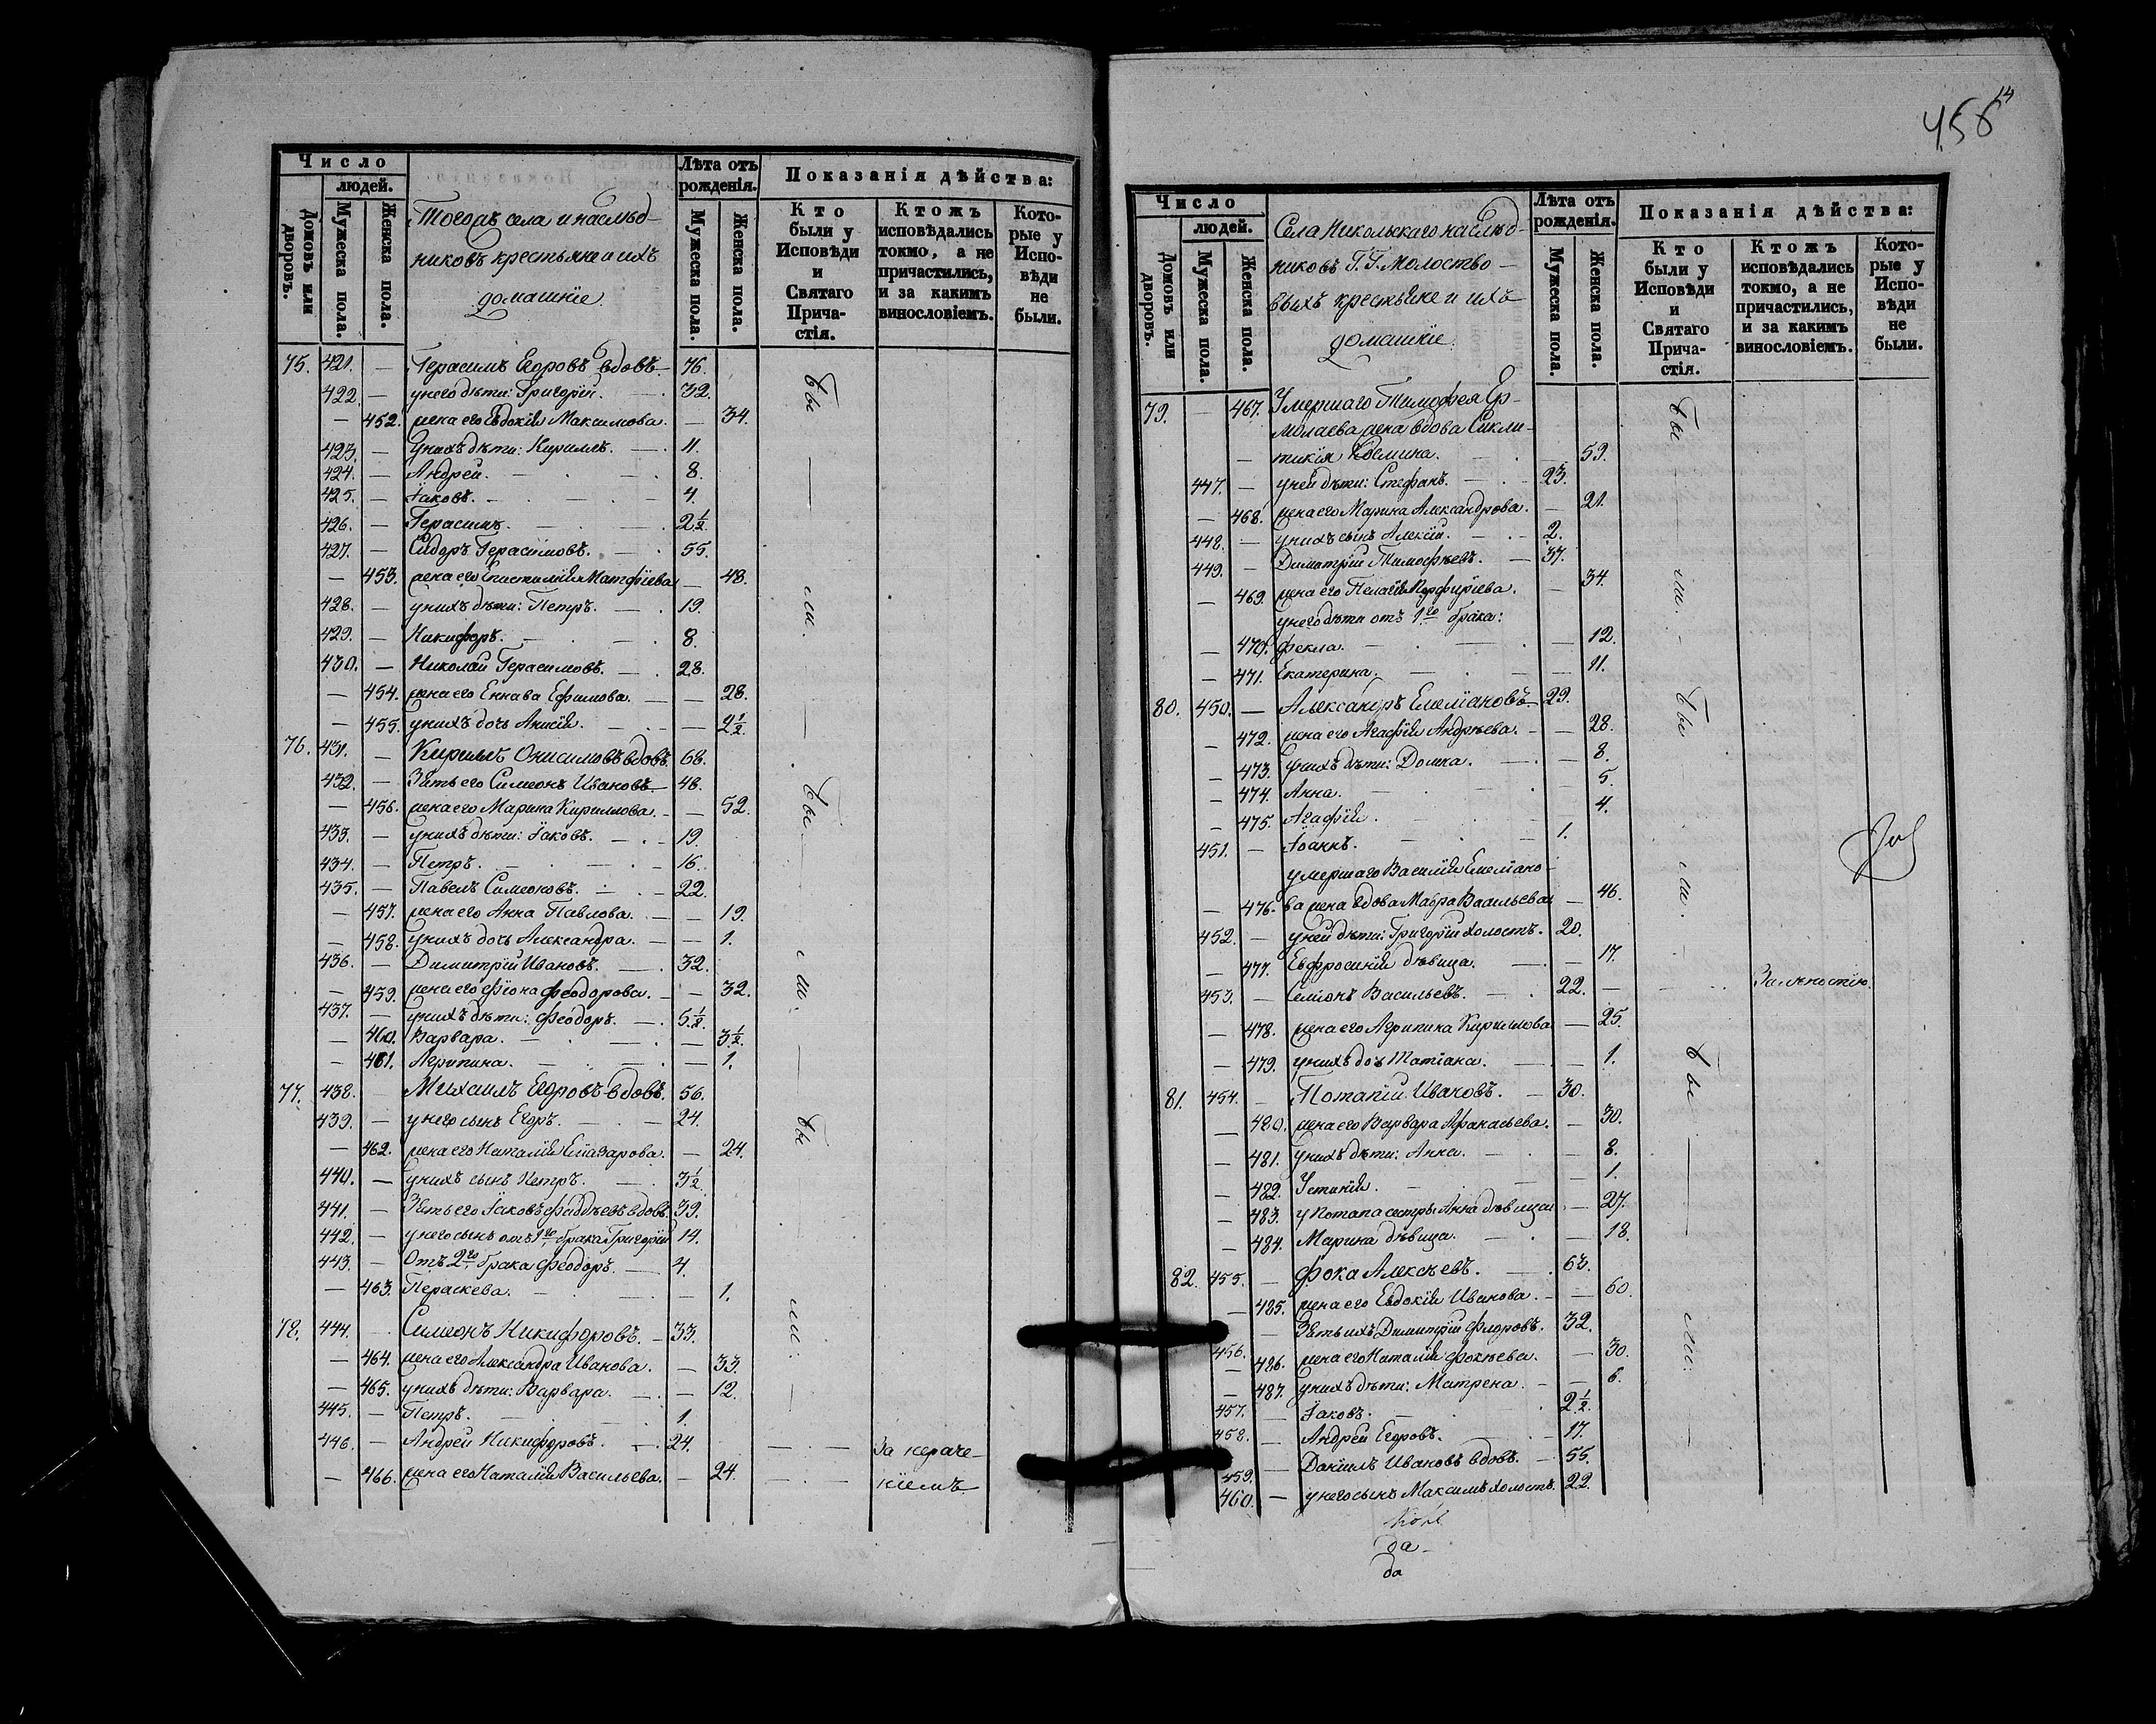 Число
людей.
Домовъ или дворовъ.
Мужеска пола.
Женска пола.
Тогожъ села и наслѣд-
никовъ крестьяне и ихъ
домашніе
Лѣта отъ рожденія.
Мужеска пола.
Женска пола.
Показанія дѣйства:
Кто были у Исповѣди и Святаго Прича-стія.
Ктожъ исповѣдались токмо, а не причастились, и за какимъ винословіемъ.
Кото-рые у Испо-вѣди не были.
75. 421. — Герасимъ Егоровъ вдовъ — 76.
422. — у него дѣти: Григорій. — 32.
— 452. жена его Евдокія Максимова. — 34.
423. — У нихъ дѣти: Кириллъ. — 11.
424. — Андрей. — 8.
425. — Іаковъ. — 4.
426. — Герасимъ. — 2½
427. — Сидоръ Герасимовъ. — 55.
— 453. жена его Епистимія Матфіева — 48.
428. — у нихъ дѣти: Петръ. — 19.
429. — Никифоръ. — 8.
430. — Николай Герасимовъ. — 28.
— 454. жена его Еннава Ефимова. — 28.
— 455. у нихъ дочь Анисія. — 2½
76. 431. — Кириллъ Онисимовъ вдовъ. 68.
432. — Зять его Симеонъ Ивановъ — 48.
— 456. жена его Марина Кириллова. — 52.
433. — у нихъ дѣти: Іаковъ. — 19.
434. — Петръ. — 16.
435. — Павелъ Симеоновъ. — 22.
— 457. жена его Анна Павлова. — 19.
— 458. у нихъ дочь Александра. — 1.
436. — Димитрій Ивановъ. — 32.
— 459. жена его Фіона Феодорова. — 32.
437. — у нихъ дѣти: Феодоръ. — 5½.
— 460. Варвара. — 3½.
— 461. Агрипина. — 1.
77. 438. — Михаилъ Егоровъ вдовъ. 56.
439. — у него сынъ Егоръ. — 24.
— 462. жена его Наталія Елiазарова. — 24.
440. — у нихъ сынъ Петръ. — 3½
441. — Зять его Іаковъ Фаддѣевъ вдовъ. 39.
442. — у него сынъ отъ 1го брака Григорій 14.
443. — Отъ 2го брака Феодоръ. — 4.
— 463. Параскева. — 1.
78. 444. — Симеонъ Никифоровъ. — 33.
— 464. жена его Александра Иванова. — 33.
— 465. у нихъ дѣти: Варвара. — 12.
445. — Петръ. — 1.
446. — Андрей Никифоровъ. — 24. — за нераче-
— 466. жена его Наталія Васильева. — 24. — ніемъ
бы — ли. —
бы — ли. —
бы — ли: —
458
14
Число
людей.
Домовъ или дворовъ.
Мужеска пола.
Женска пола.
Села Никольскаго наслѣд-
никовъ Г. Г. Молоство-
выхъ крестьяне и ихъ
домашніе.
Лѣта отъ рожденія.
Мужеска пола.
Женска пола.
Показанія дѣйства:
Кто были у Исповѣди и Святаго Прича-стія.
Ктожъ исповѣдались токмо, а не причастились, и за какимъ винословіемъ.
Кото-рые у Испо-вѣди не были.
79. 467. Умершаго Тимофея Ер-
молаева жена вдова Сикли-
— тикія Козмина. — 59.
447. — у ней дѣти: Стефанъ. — 23.
— 468. жена его Марина Александрова. — 21.
448. — у нихъ сынъ Алексій. — 2.
449. — Димитрій Тимофѣевъ. — 37.
— 469. жена его Пелагія Порфиріева. — 34.
у него дѣти отъ 1го брака:
— 470. Фекла. — 12.
— 471. Екатерина. — 11.
80. 450. — Александръ Емеліановъ — 29.
— 472. жена его Агафія Андрѣева. — 28.
— 473. у нихъ дѣти: Домна. — 8.
— 474. Анна. — 5.
— 475. Агафія. — 4.
451. — Іоаннъ. — 1.
умершаго Василія Емеліано-
— 476. ва жена вдова Мавра Васильева — 46.
452. — у ней дѣти: Григорій холостъ. 20.
— 477. Евфросинія дѣвица. — 17.
453. — Семіонъ Васильевъ. — 22. — За лѣностію.
— 478. жена его Агрипина Кириллова — 25.
— 479. у нихъ дочь Татіана. — 1.
81. 454. — Потапій Ивановъ. — 30.
— 480. жена его Варвара Афанасьева. — 30.
— 481. у нихъ дѣти: Анна. — 8.
— 482. Устинія. — 1.
— 483. у Потапа сестры Анна дѣвица — 27.
— 484. Марина дѣвица. — 18.
82. 455. — Фока Алексѣевъ. — 63.
— 485. жена его Евдокія Иванова. — 60.
456. — Зять ихъ Димитрій Фидровъ. 32.
— 486. жена его Наталія Фокѣева. — 30.
— 487. у нихъ дѣти: Матрена. — 6.
457. — Іаковъ. — 2½.
458. — Андрей Егоровъ. — 17.
459. — Даніилъ Ивановъ вдовъ. — 55.
460. — у него сынъ Максимъ холостъ. 22.
бы — ли. —
бы — ли. —
бы — ли: —
да
да